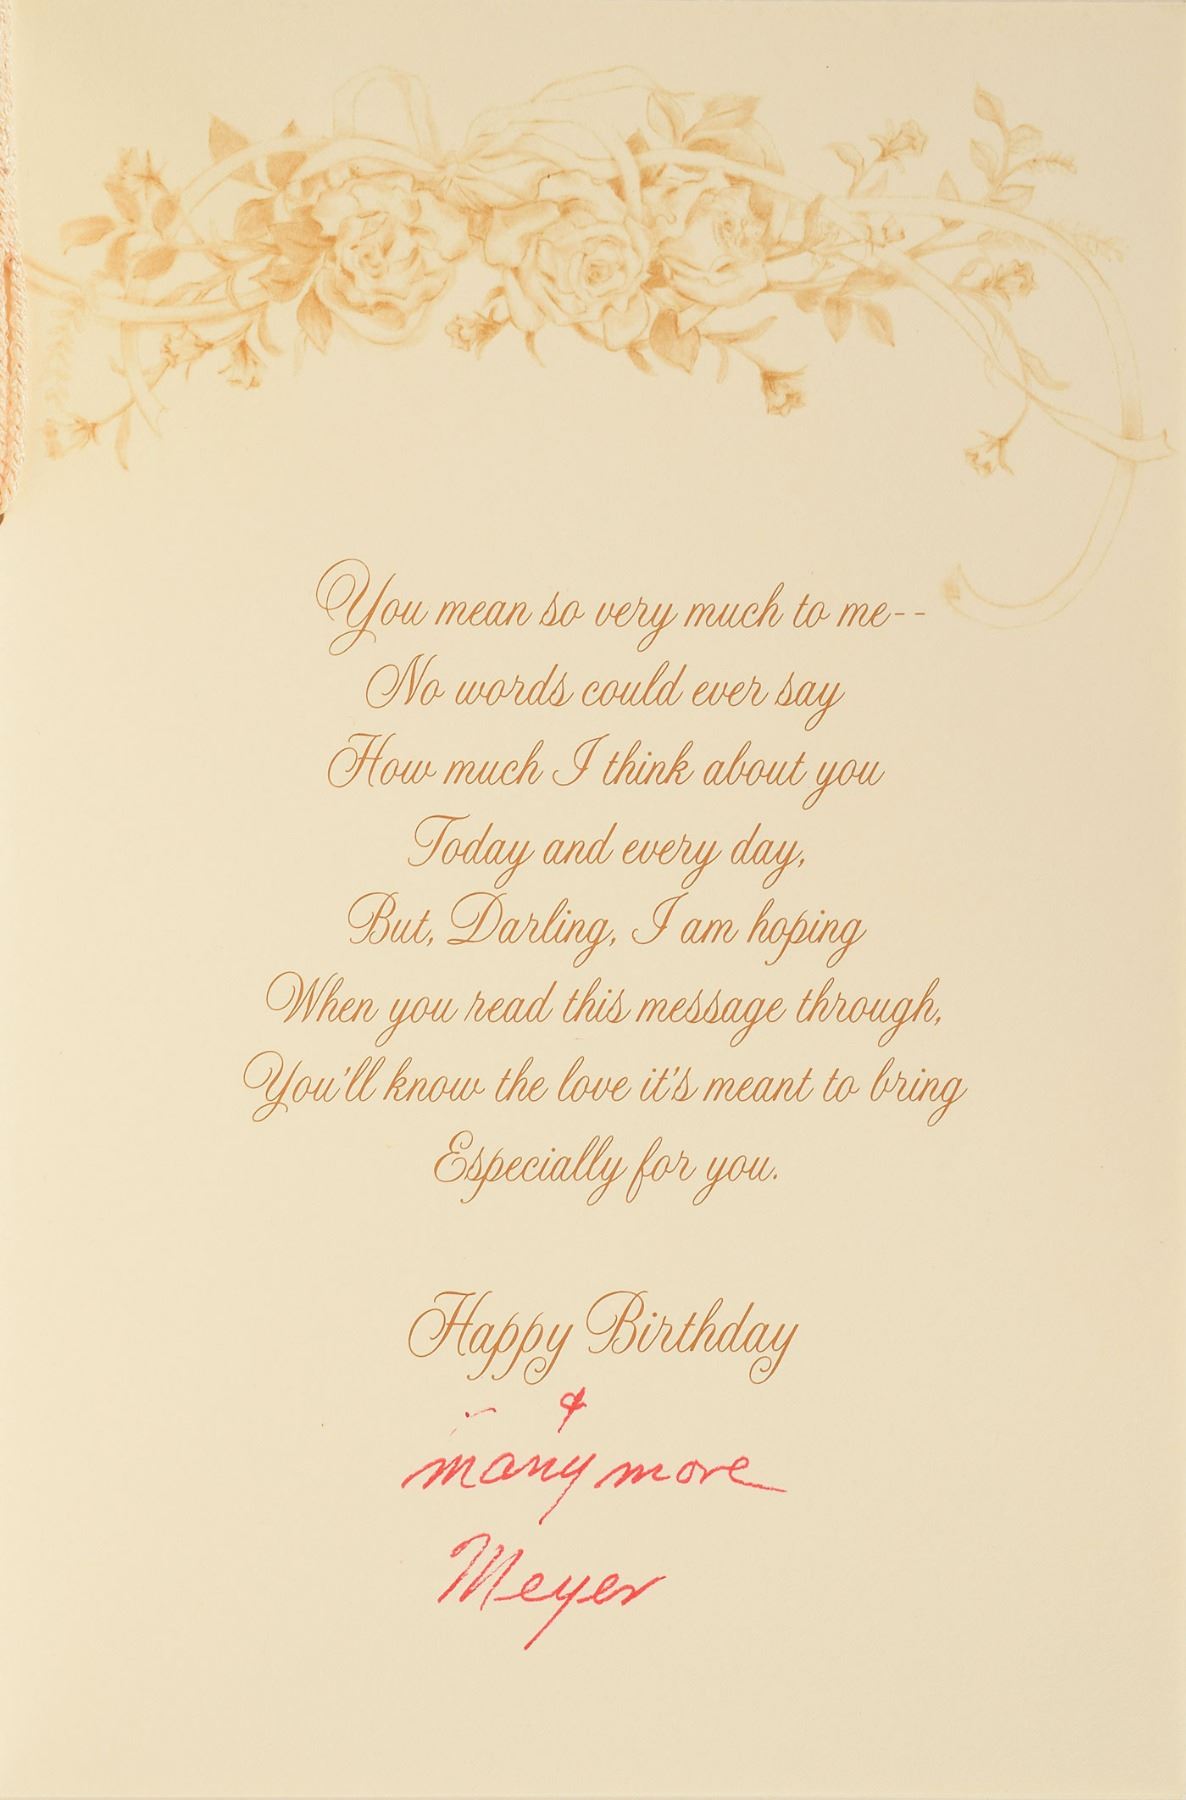 You mean so very much to me--
No words could ever say
How much I think about you
Today and every day,
But, Darling, I am hoping
When you read this message through,
You'll know the love it's meant to bring
Especially for you.
Happy Birthday
&
many more
Meyer